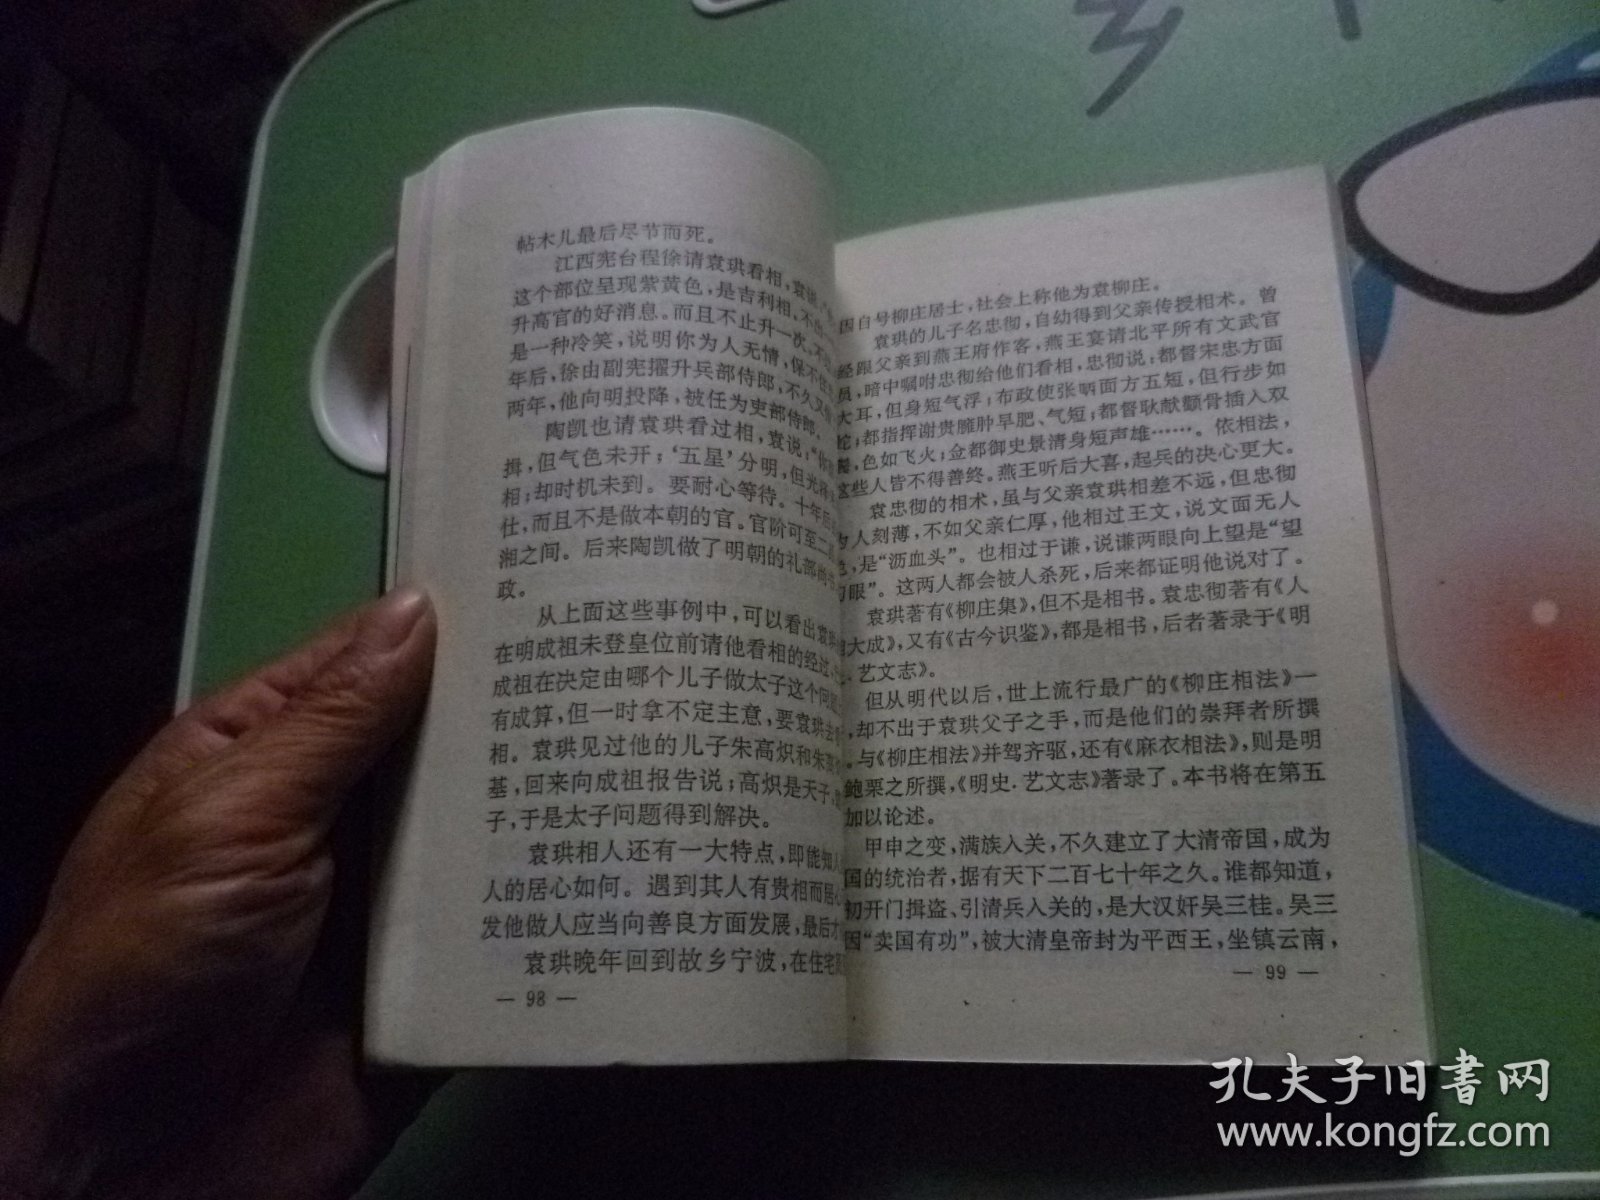 帖木儿最后尽节而死。
江西宪台程徐请袁珙看相,袁说,
这个部位呈现紫黄色,是吉利相,不出
升高官的好消息。而且不止升一次。不
是一种冷笑,说明你为人无情,保不住
年后,徐由副宪擢升兵部侍郎,不久又
两年,他向明投降,被任为吏部侍郎。
陶凯也请袁珙看过相,袁说:“你
揖,但气色未开;‘五星’分明,但光泽
相;却时机未到。要耐心等待。十年后
仕,而且不是做本朝的官。官阶可至二品
湘之间。后来陶凯做了明朝的礼部尚书
政。
从上面这些事例中,可以看出袁珙
在明成祖未登皇位前请他看相的经过,
成祖在决定由哪个儿子做太子这个问题
有成算,但一时拿不定主意,要袁珙去
相。袁珙见过他的儿子朱高炽和朱
基,回来向成祖报告说;高炽是天子,
子,于是太子问题得到解决。
袁珙相人还有一大特点,即能知人
人的居心如何。遇到其人有贵相而居心
发他做人应当向善良方面发展,最后才
袁珙晚年回到故乡宁波,在住宅
— 98 —
因自号柳庄居士,社会上称他为袁柳庄。
袁珙的儿子名忠彻,自幼得到父亲传授相术。曾
经跟父亲到燕王府作客,燕王宴请北平所有文武官
员,暗中嘱咐忠彻给他们看相,忠彻说:都督宋忠方面
大耳,但身短气浮;布政使张昺面方五短,但行步如
蛇;都指挥谢贵臃肿早肥、气短;都督耿献颧骨插入双
鬓,色如飞火;佥都御史景清身短声雄……。依相法,
这些人皆不得善终。燕王听后大喜,起兵的决心更大。
袁忠彻的相术,虽与父亲袁珙相差不远,但忠彻
为人刻薄,不如父亲仁厚,他相过王文,说文面无人
色,是“沥血头”。也相过于谦,说谦两眼向上望是“望
刀眼”。这两人都会被人杀死,后来都证明他说对了。
袁珙著有《柳庄集》,但不是相书。袁忠彻著有《人
相大成》,又有《古今识鉴》,都是相书,后者著录于《明
·艺文志》。
但从明代以后,世上流行最广的《柳庄相法》一
,却不出于袁珙父子之手,而是他们的崇拜者所撰
。与《柳庄相法》并驾齐驱,还有《麻衣相法》,则是明
鲍栗之所撰,《明史·艺文志》著录了。本书将在第五
加以论述。
甲申之变,满族入关,不久建立了大清帝国,成为
国的统治者,据有天下二百七十年之久。谁都知道,
初开门揖盗、引清兵入关的,是大汉奸吴三桂。吴三
因“卖国有功”,被大清皇帝封为平西王,坐镇云南,
— 99 —
孔夫子旧书网
www.kongfz.com